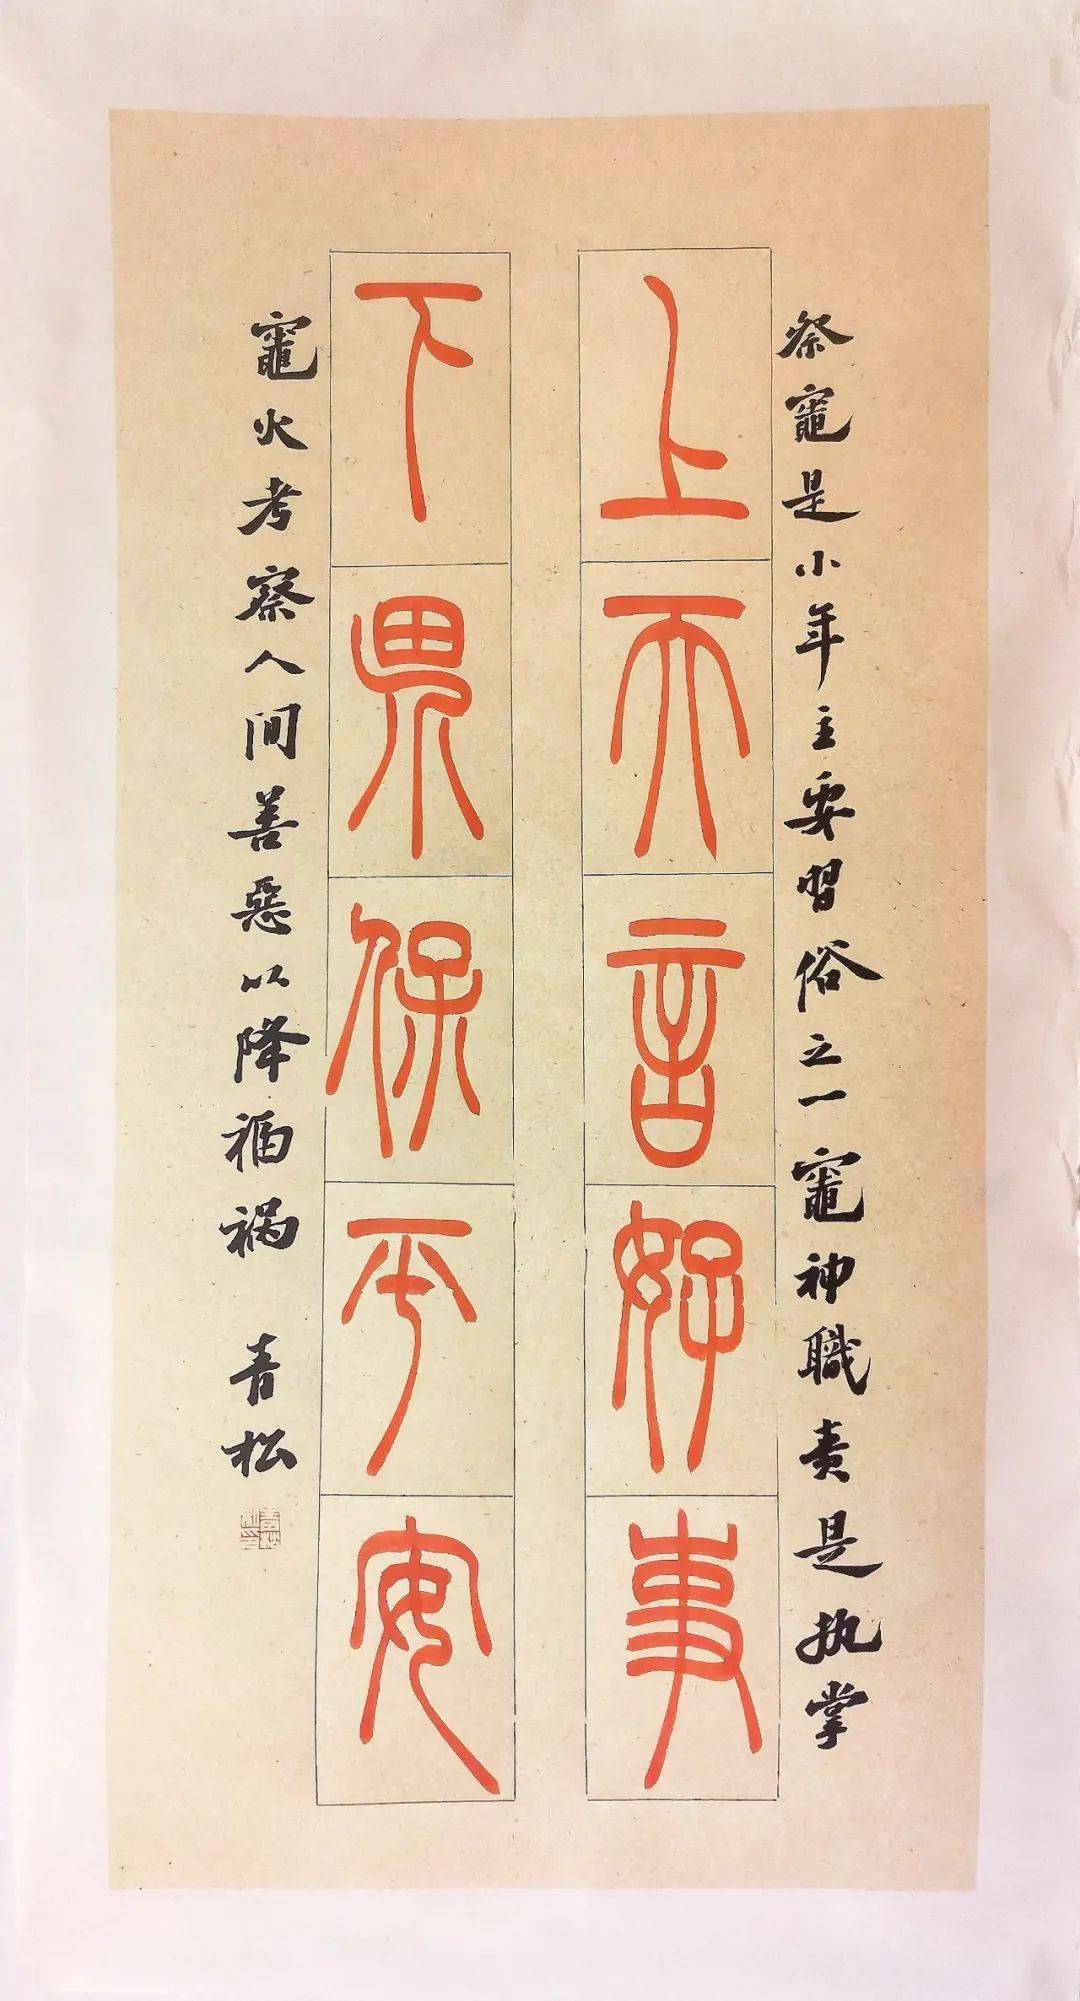 祭竈是小年主要習俗之一竈神職責是执掌
上天言好事
下界保平安
竈火考察人间善惡以降福祸 青松